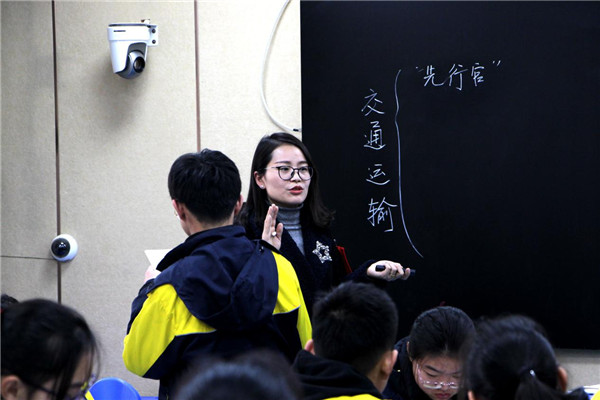 交通运输
"先行官"